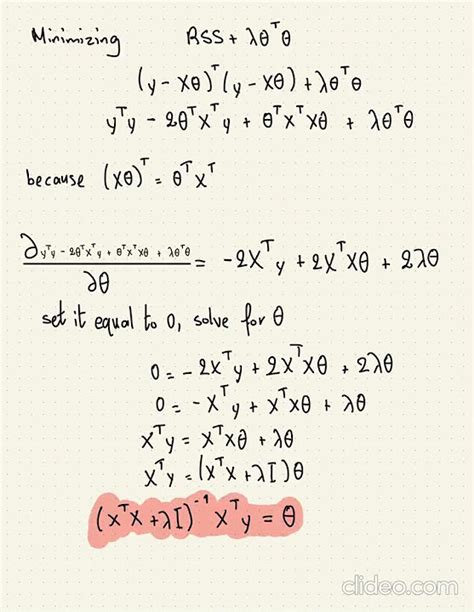 Minimizing RSS + λθᵀθ
(y - Xθ)ᵀ(y - Xθ) + λθᵀθ
yᵀy - 2θᵀXᵀy + θᵀXᵀXθ + λθᵀθ
because (Xθ)ᵀ = θᵀXᵀ
∂ yᵀy - 2θᵀXᵀy + θᵀXᵀXθ + λθᵀθ / ∂θ = -2Xᵀy + 2XᵀXθ + 2λθ
set it equal to 0, solve for θ
0 = - 2Xᵀy + 2XᵀXθ + 2λθ
0 = - Xᵀy + XᵀXθ + λθ
Xᵀy = XᵀXθ + λθ
Xᵀy = (XᵀX + λI)θ
(XᵀX + λI)⁻¹ Xᵀy = θ
clideo.com